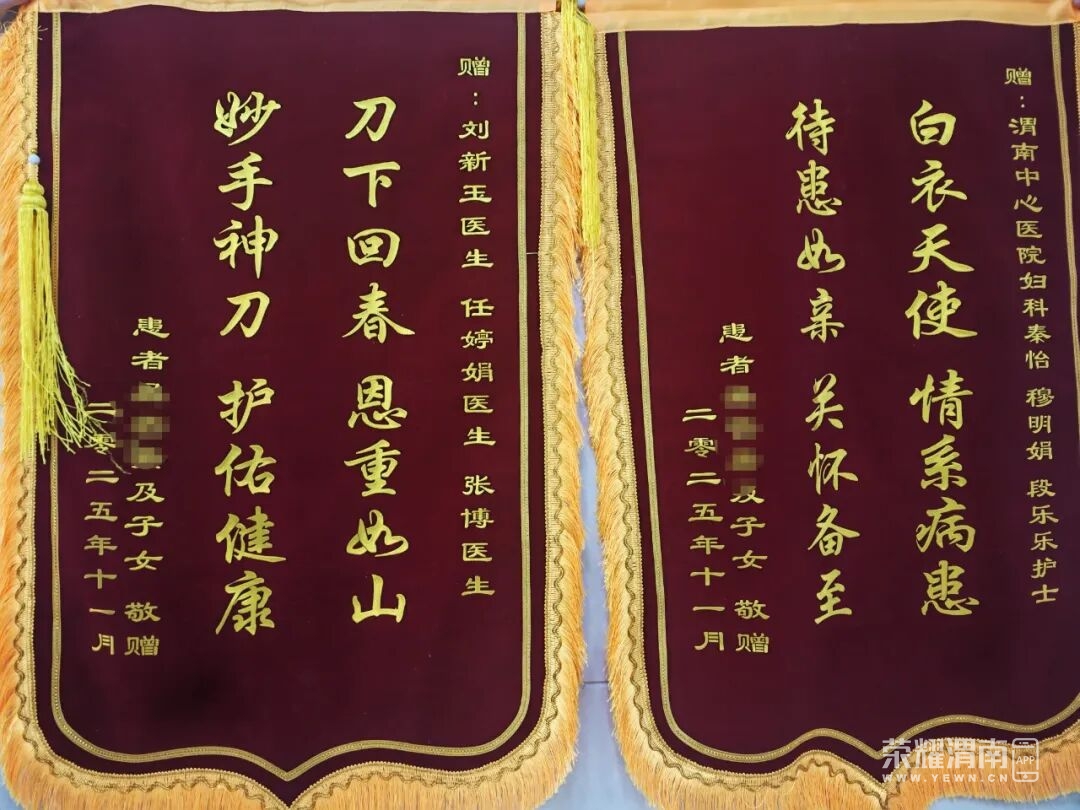 赠：刘新玉医生 任婷娟医生 张博医生
刀下回春 恩重如山
妙手神刀 护佑健康
患者 及子女 敬赠
二零二五年十一月
赠：渭南中心医院妇科秦怡 穆明娟 段乐乐护士
白衣天使 情系病患
待患如亲 关怀备至
患者 及子女 敬赠
二零二五年十一月
荣耀渭南 APP
WWW.YEWN.CN